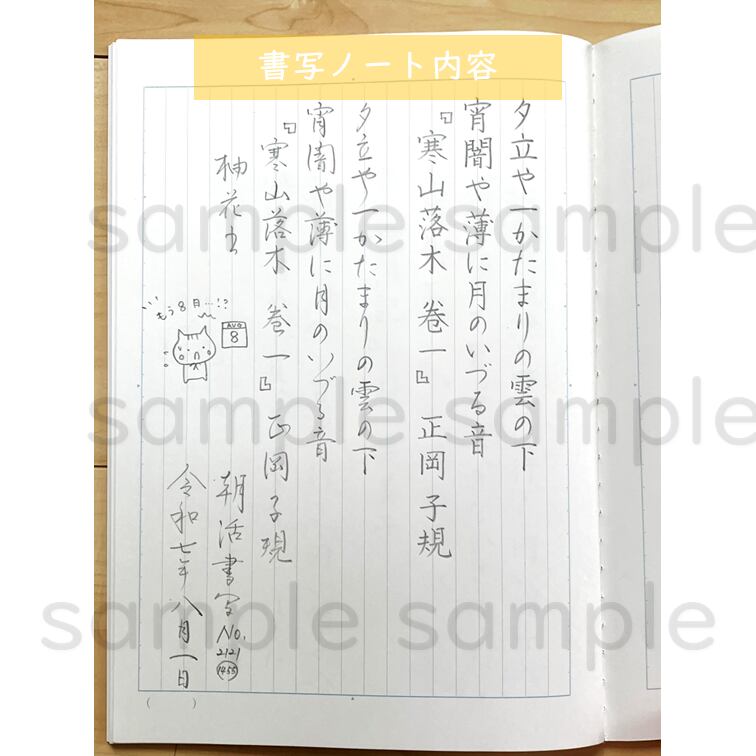 書写ノート内容
夕立や一かたまりの雲の下
宵闇や薄に月のいづる音
『寒山落木 巻一』 正岡子規
夕立や一かたまりの雲の下
宵闇や薄に月のいづる音
『寒山落木 巻一』 正岡子規
柚花
朝活書写No.
2121
1455
令和七年八月一日
もう8月…!?
AUG
8
sample sample
sample sample
sample sample